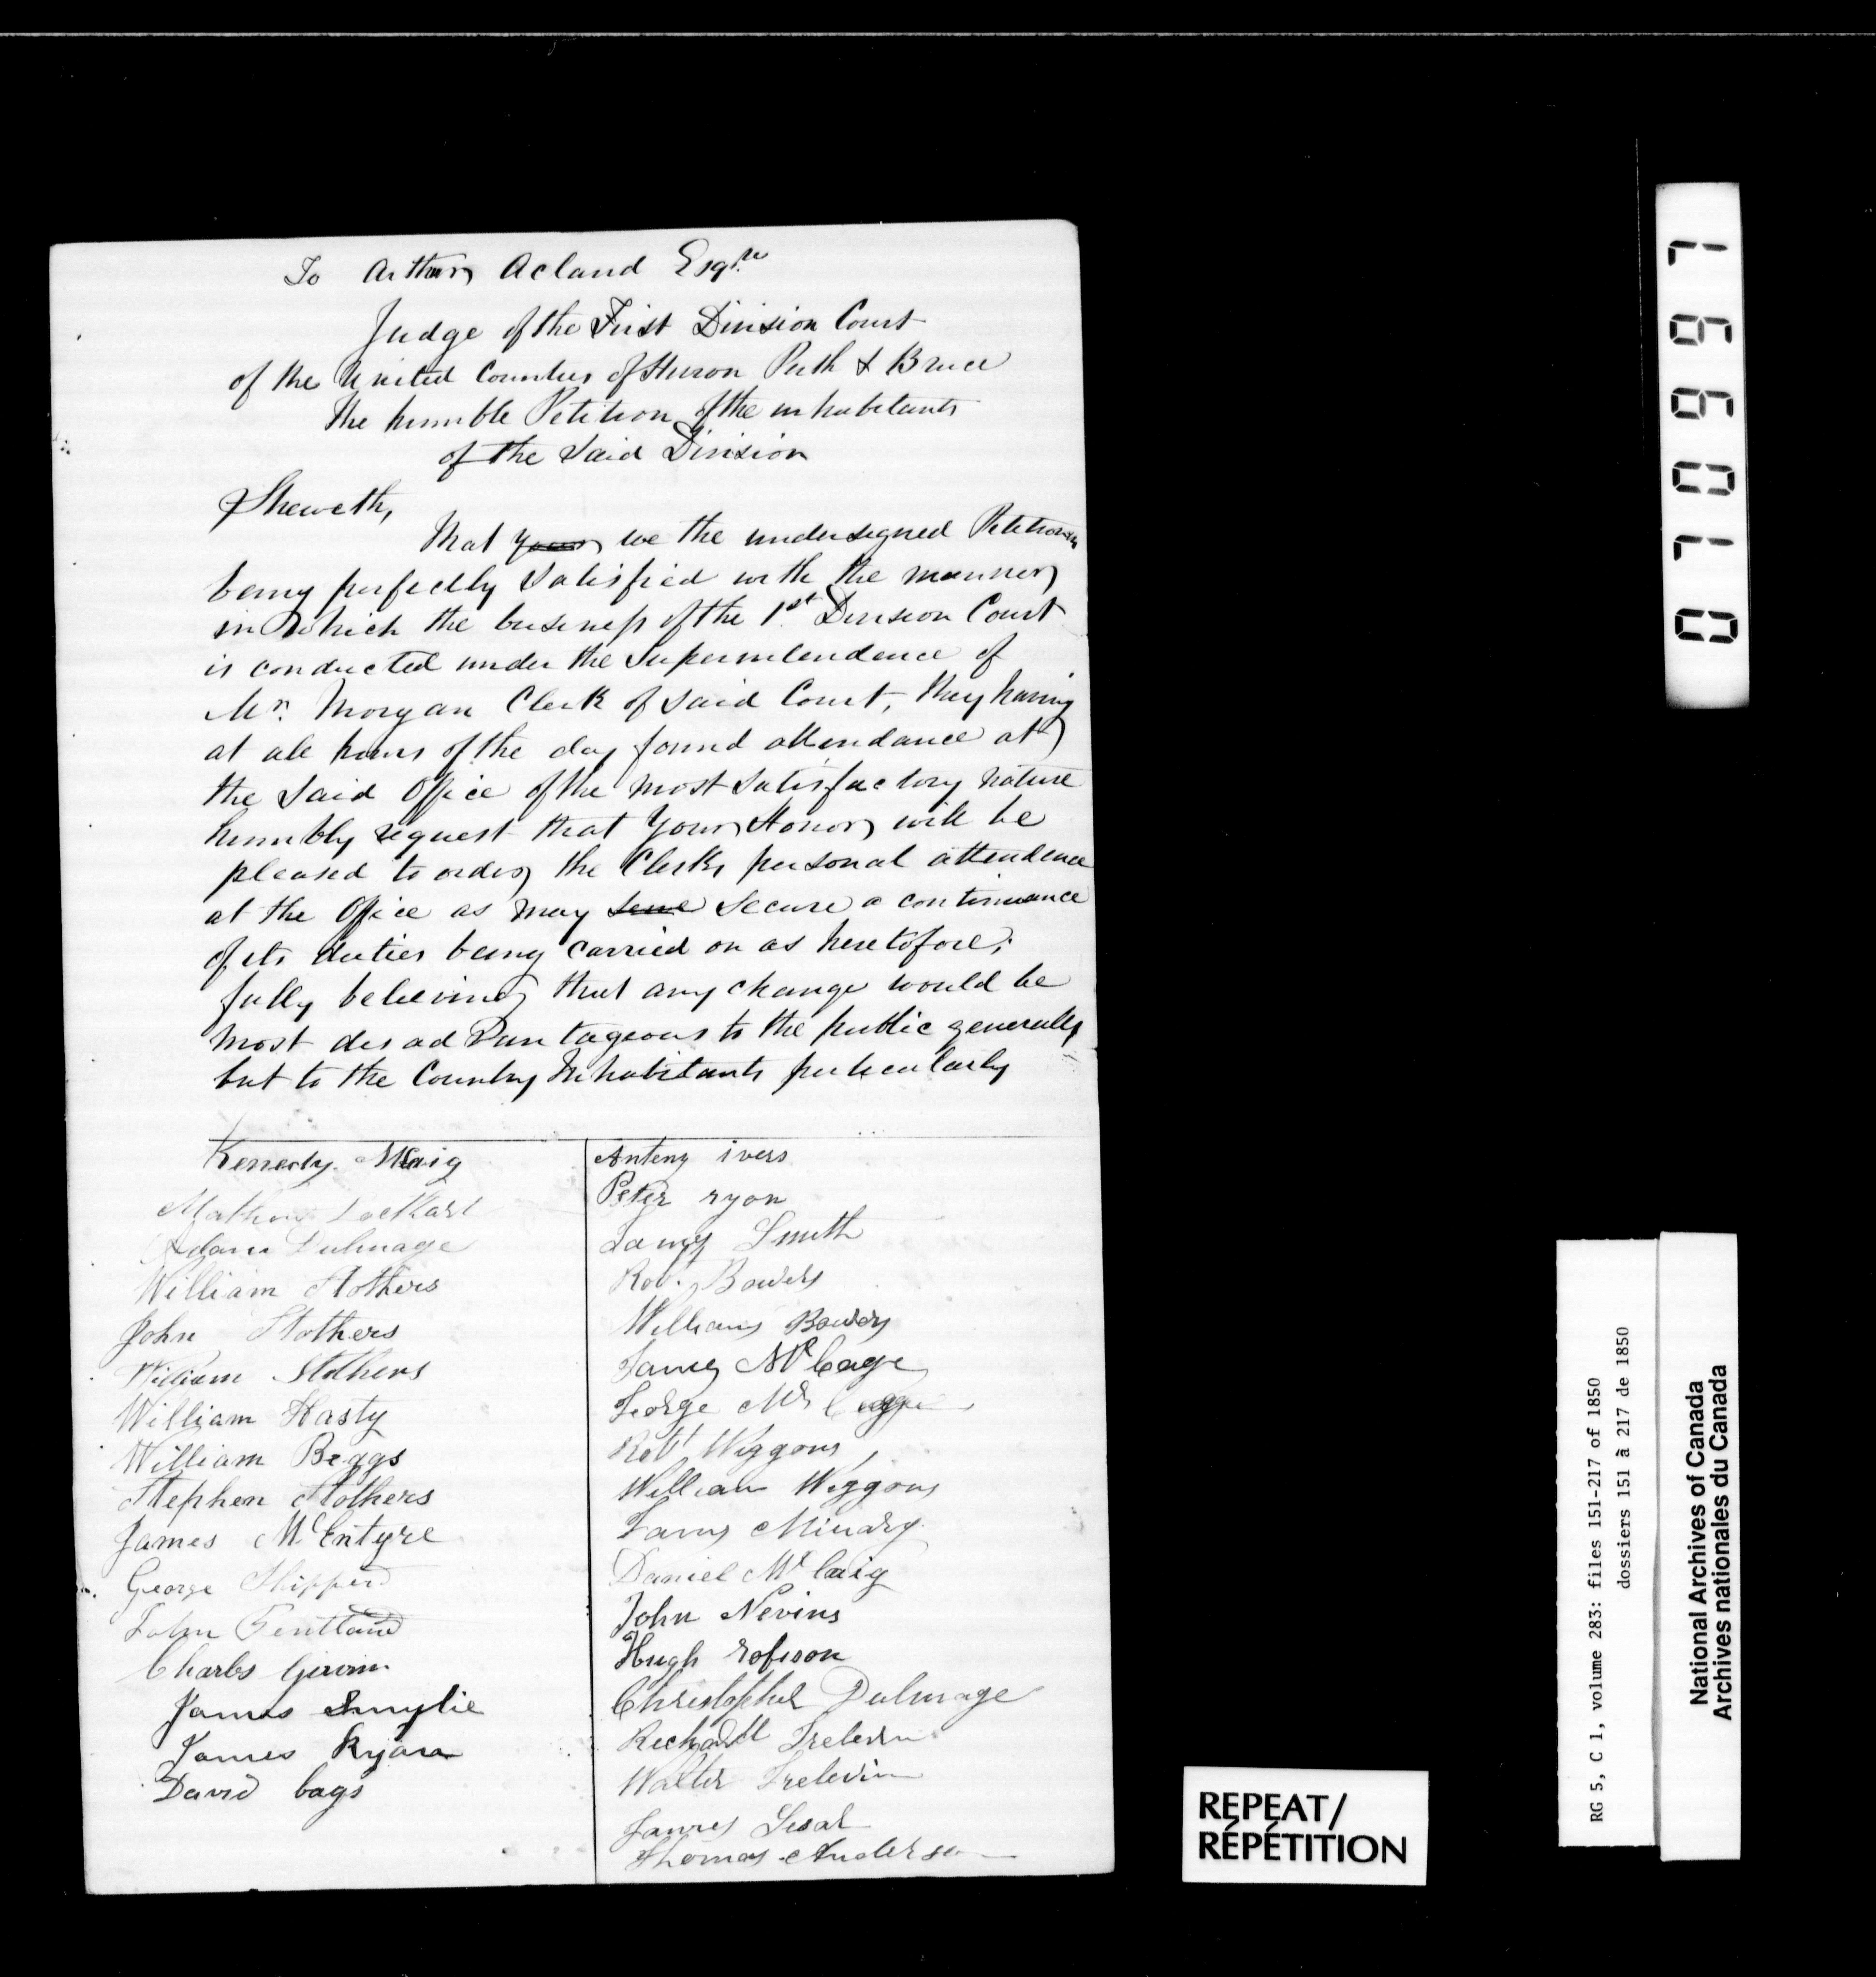 To Arthur Acland Esqre
Judge of the First Division Court
of the United Counties of Huron Perth & Bruce
The humble Petition of the inhabitants
of the Said Division
Sheweth,
That your we the undersigned Petitioners
being perfectly Satisfied with the manner
in which the business of the 1st Division Court
is conducted under the Superintendence of
Mr. Morgan Clerk of Said Court, they having
at all hours of the day found attendance at
the Said Office of the most Satisfactory nature
humbly request that Your Honor will be
pleased to order the Clerks personal attendence
at the Office as may Secure a continuance
of its duties being carried on as heretofore;
fully believing that any change would be
most disadvantageous to the public generally
but to the Country Inhabitants perticularly
Kenedy McCaig
Mathew Lockart
Adam Dulmage
William Stothers
John Stothers
William Stothers
William Hasty
William Beggs
Stephen Stothers
James McEntyre
George Shipperd
John Pentland
Charles Girvin
James Smylie
James Ryan
David bags
Anteny ivers
Peter ryon
James Smith
Robt Bowers
William Bowers
James McCage
George Mc
Robt Wiggons
William Wiggons
James
Daniel McCaig
John Nevins
Hugh
Christopher Dulmage
Richard Trelevin
Walter Trelevin
James
Thomas Anderson
017
REPEAT/
RÉPÉTITION
RG 5, C 1, volume 283: files 151-217 of 1850
dossiers 151 à 217 de 1850
National Archives of Canada
Archives nationales du Canada